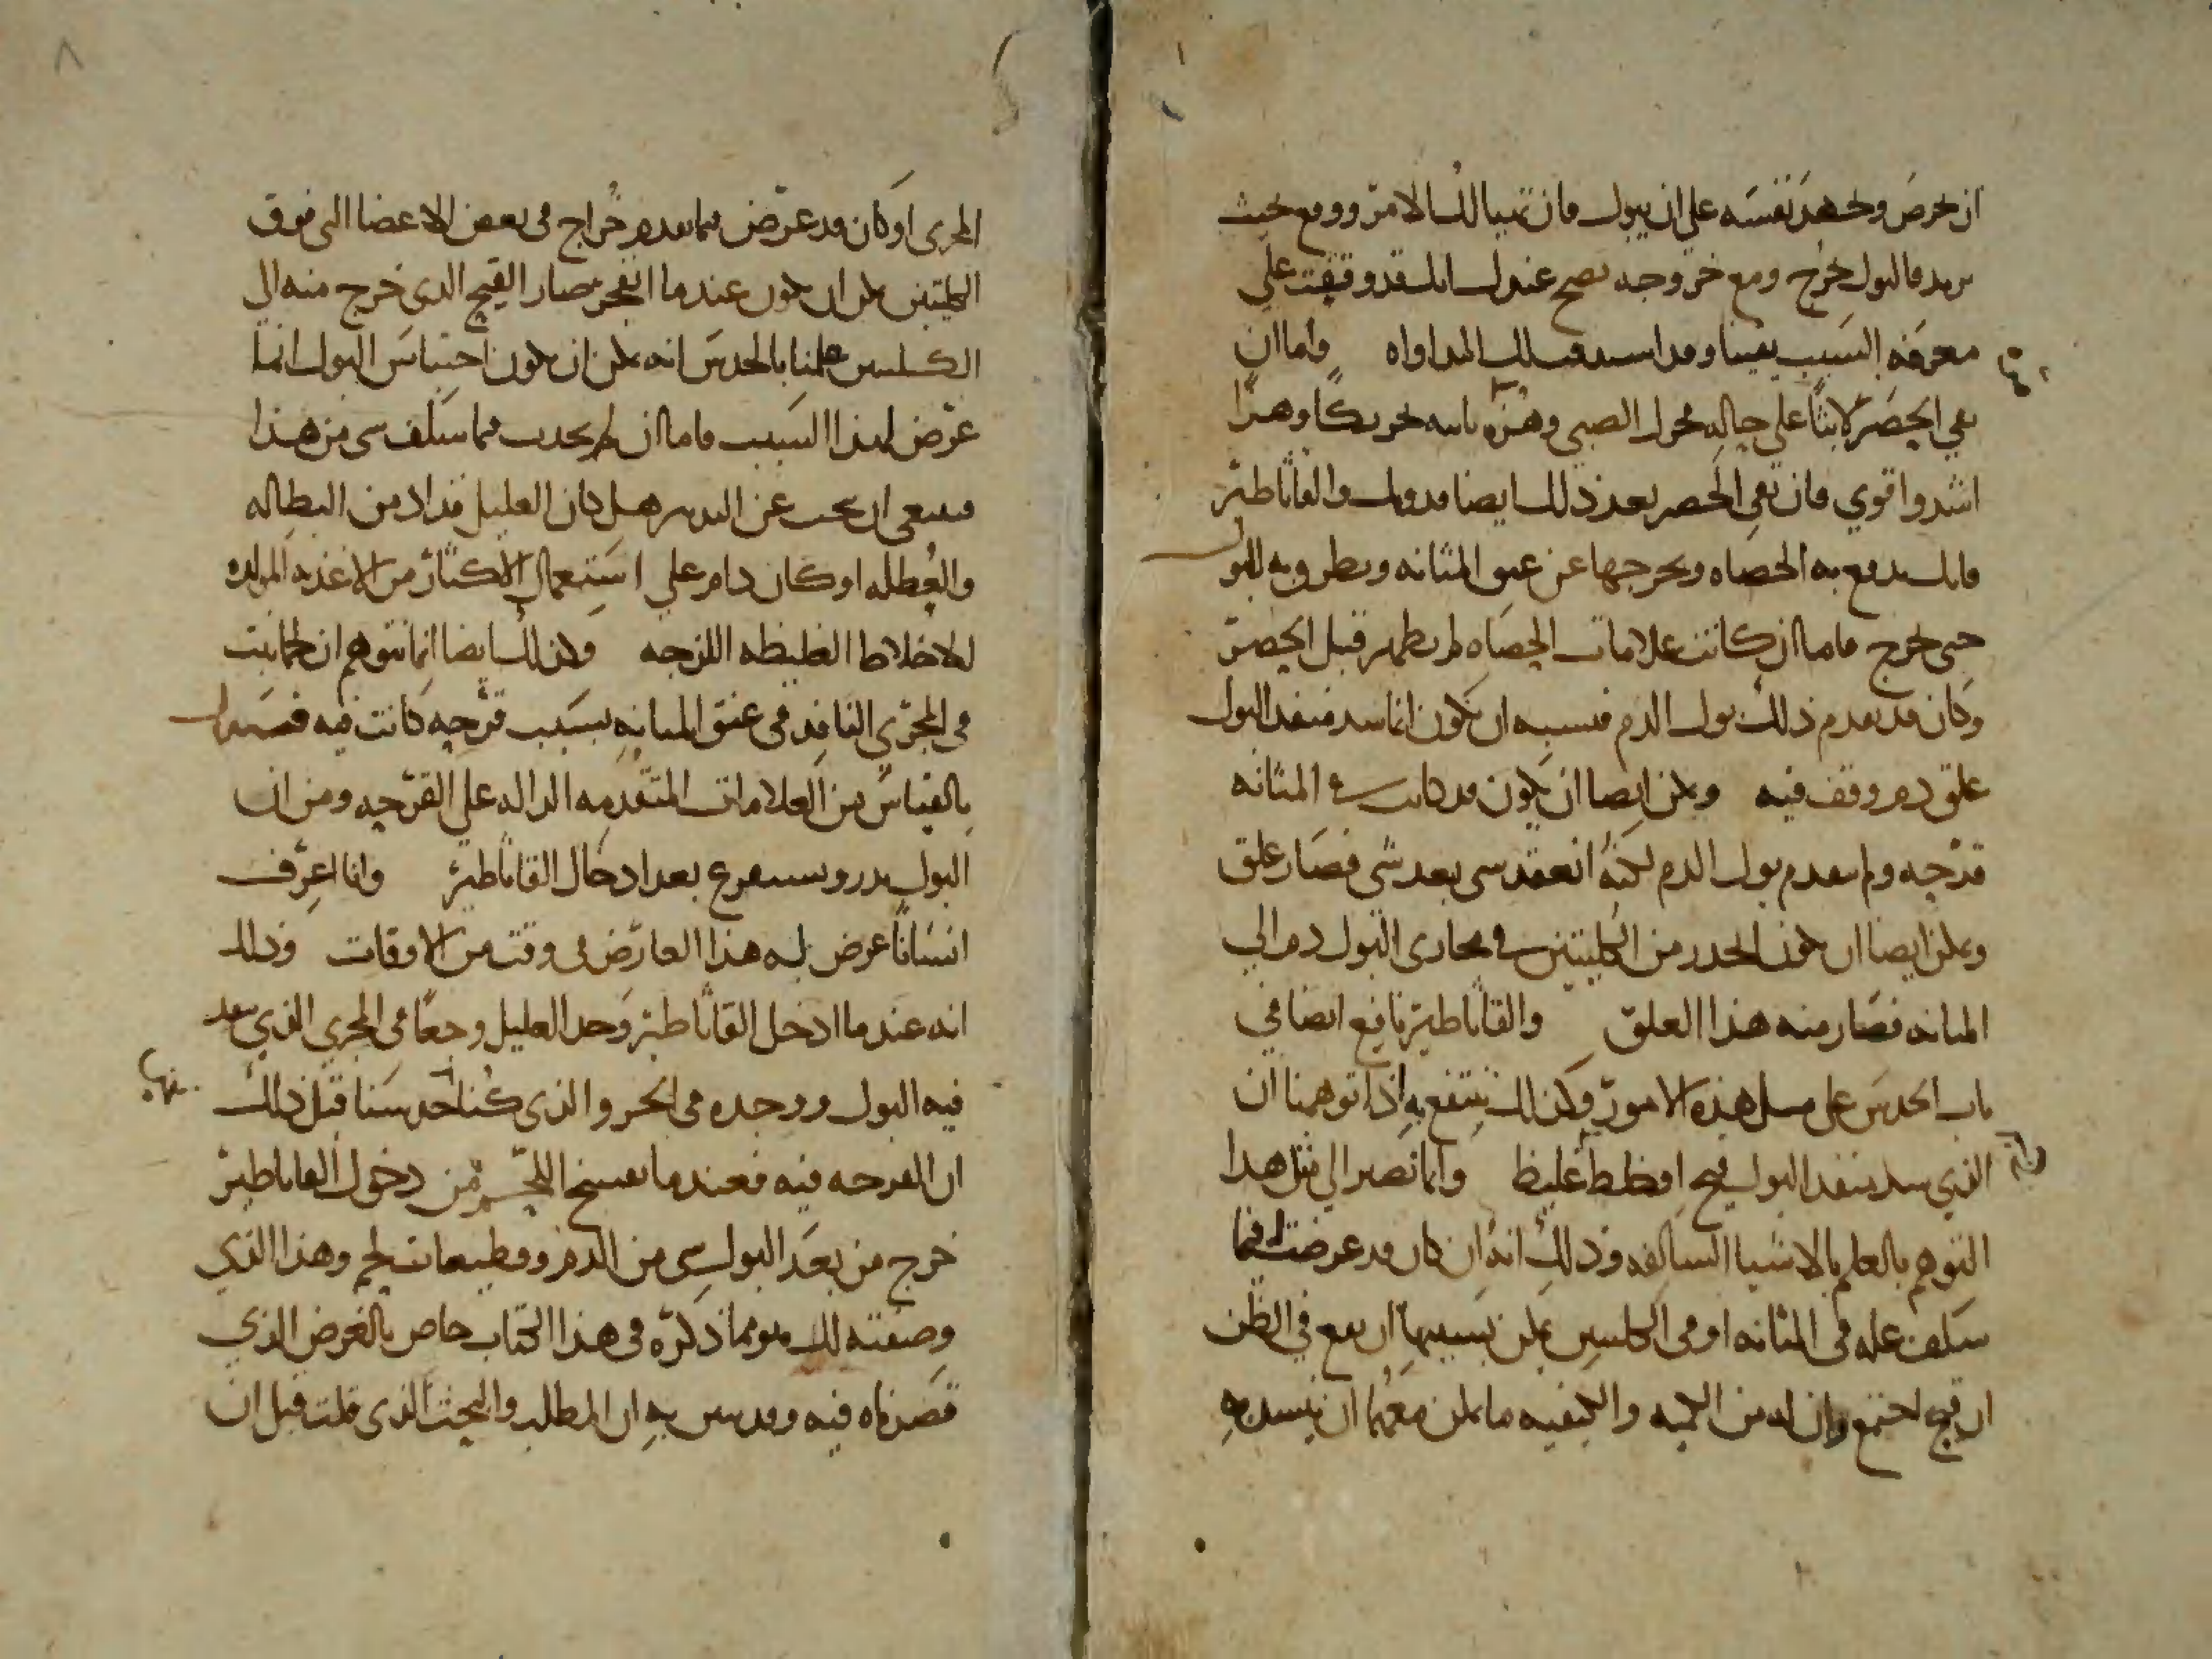 ان يحرص ويجهد نفسه على ان يبول فان تهيا لك الامر ووقع بحيث
تريد فالبول يخرج ومع خروجه يصح عندك انك قد وقفت على
معرفة السبب يقينا وقد المداواه واما ان
بقي الحصر لابثا على حاله فحول الصبي وهزه تحريكا وهزا
اشد واقوى فان بقي الحصر بعد ذلك ايضا فدونك والقاثاطير
فانك تدفع به الحصاه وتخرجها عن عنق المثانه وتطرق به للبول
حتى يخرج فاما ان كانت علامات الحصاه لم تظهر قبل الحصر
وكان قد تقدم ذلك بول الدم فيشبه ان يكون انما سد منفذ البول
علق دم وقف فيه ويمكن ايضا ان يكون قد كانت في المثانه
قرحه ولم يتقدم بول الدم لكنه انعقد شي بعد شي فصار علق
ويمكن ايضا ان يكون انحدر من الكليتين في مجاري البول دم الى
المثانه فصار منه هذا العلق والقاثاطير نافع ايضا في
باب الحدس على مثل هذه الامور وكذلك ينتفع به اذا توهمنا ان
الذي سد منفذ البول قيح او خلط غليظ وانما نصير الى مثل هذا
التوهم بالعلم بالاشيا السالفه وذلك انه ان كان قد عرضت فيما
سلف عله في المثانه او في الكليتين يمكن بسببها ان يقع في الظن
ان قيح اجتمع وان له من الكميه والكيفيه ما يمكن معهما ان ينسد به
المجرى او كان قد عرض فيما تقدم خراج في بعض الاعضا التي فوق
الكليتين يمكن ان يكون عندما انفجر صار القيح الذي خرج منه الى
الكليتين علمنا بالحدس انه يمكن ان يكون احتباس البول انما
عرض لهذا السبب فاما ان لم يحدث فيما سلف شي من هذا
فينبغي ان يبحث عن التدبير هل كان العليل قد ادمن البطاله
والعطله او كان دام على استعمال الاكثار من الاغذيه المولده
للاخلاط الغليظه اللزجه وكذلك ايضا انما نتوهم ان لحما نبت
في المجرى النافذ في عنق المثانه بسبب قرحه كانت فيه
بالقياس من العلامات المتقدمه الداله على القرحه ومن ان
البول يدر ويستفرغ بعد ادخال القاثاطير وانا اعرف
انسانا عرض له هذا العارض في وقت من الاوقات وذلك
انه عندما ادخل القاثاطير وجد العليل وجعا في المجرى الذي ينفذ
فيه البول ووجده في والذي كنا حدسنا قبل ذلك
ان القرحه فيه فعندما تفسخ اللحم من دخول القاثاطير
خرج من بعد البول شي من الدم وقطيعات لحم وهذا الذي
وصفته لك هو مما ذكره في هذا الكتاب خاص بالغرض الذي
قصدناه فيه وقد تبين به ان المطلب والبحث الذي قلت قبل ان